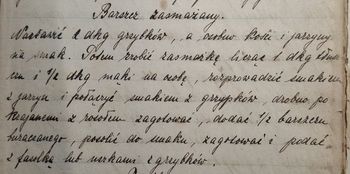 Barszcz zasmażany.
Nastawić 2 dkg grzybków, a osobno kości i jarzyny
na smak. Potem zrobić zasmażkę licząc 1 dkg tłusz-
czem i 1/2 dkg mąki na osobę, rozprowadzić smakiem
z jarzyn i połączyć smakiem z grzybków, drobno po
krajanemi z rosołem zagotować, dodać 1/2 barszczu
buraczanego, posolić do smaku, zagotować i podać
z fasolką lub uszkami z grzybków.